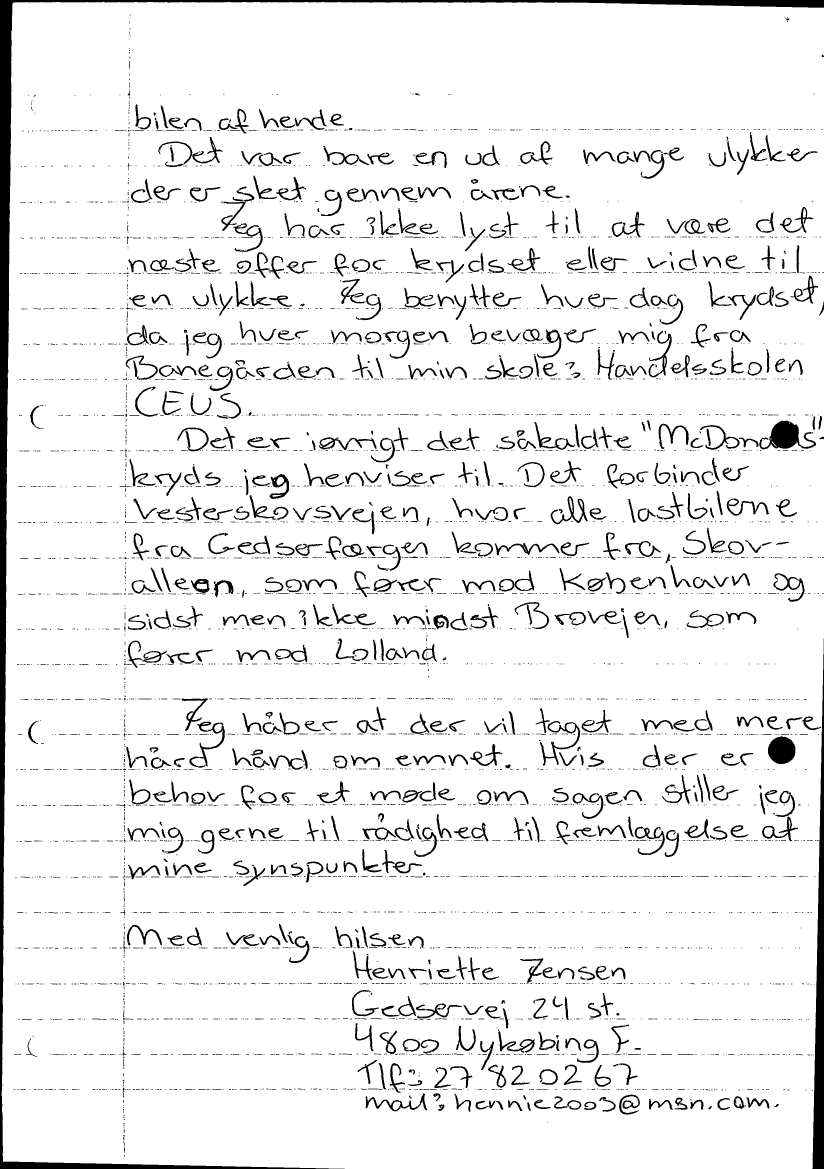 bilen af hende.
Det var bare en ud af mange ulykker
der er sket gennem årene.
Jeg har ikke lyst til at være det
næste offer for krydset eller vidne til
en ulykke. Jeg benytter hver dag krydset,
da jeg hver morgen bevæger mig fra
Banegården til min skole: Handelsskolen
CEUS.
Det er iøvrigt det såkaldte "McDonalds"-
kryds jeg henviser til. Det forbinder
Vesterskovsvejen, hvor alle lastbilerne
fra Gedserfærgen kommer fra, Skov-
alleen, som fører mod København og
sidst men ikke mindst Brovejen, som
fører mod Lolland.
Jeg håber at der vil taget med mere
hård hånd om emnet. Hvis der er
behov for et møde om sagen stiller jeg
mig gerne til rådighed til fremlæggelse af
mine synspunkter.
Med venlig hilsen
Henriette Jensen
Gedservej 24 st.
4800 Nykøbing F.
Tlf: 27 82 02 67
mail: hennie2003@msn.com.